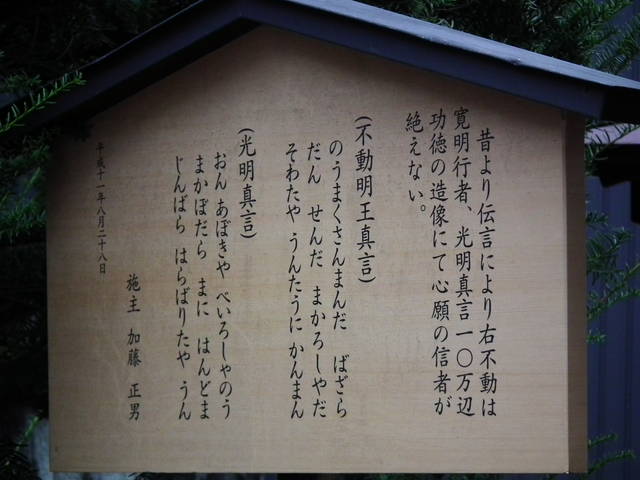 昔より伝言により右不動は
寛明行者、光明真言一〇万辺
功徳の造像にて心願の信者が
絶えない。
(不動明王真言)
のうまくさんまんだ ばざら
だん せんだ まかろしやだ
そわたや うんたらに かんまん
(光明真言)
おん あぼきや べいろしゃのう
まかぼだら まに はんどま
じんばら はらばりたや うん
平成十一年八月二十八日
施主 加藤 正男